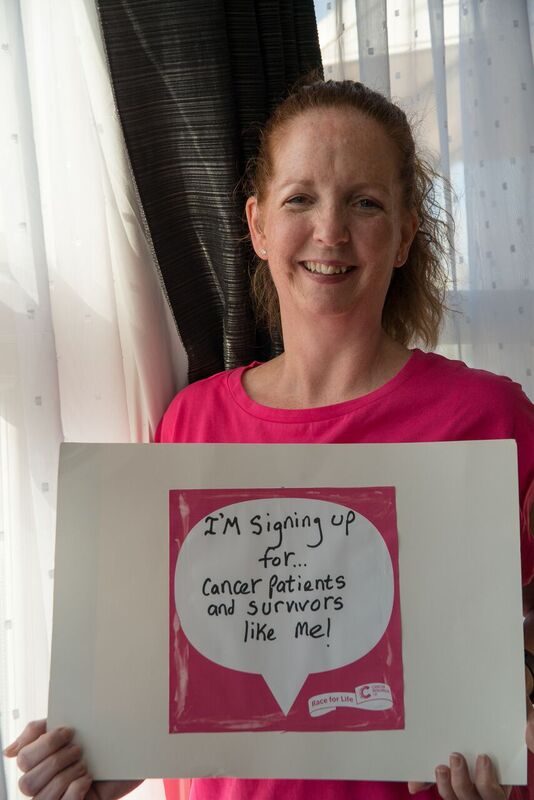 I'M Signing up
for...
Cancer patients
and survivors
like me!
Race for Life
CANCER
RESEARCH
UK